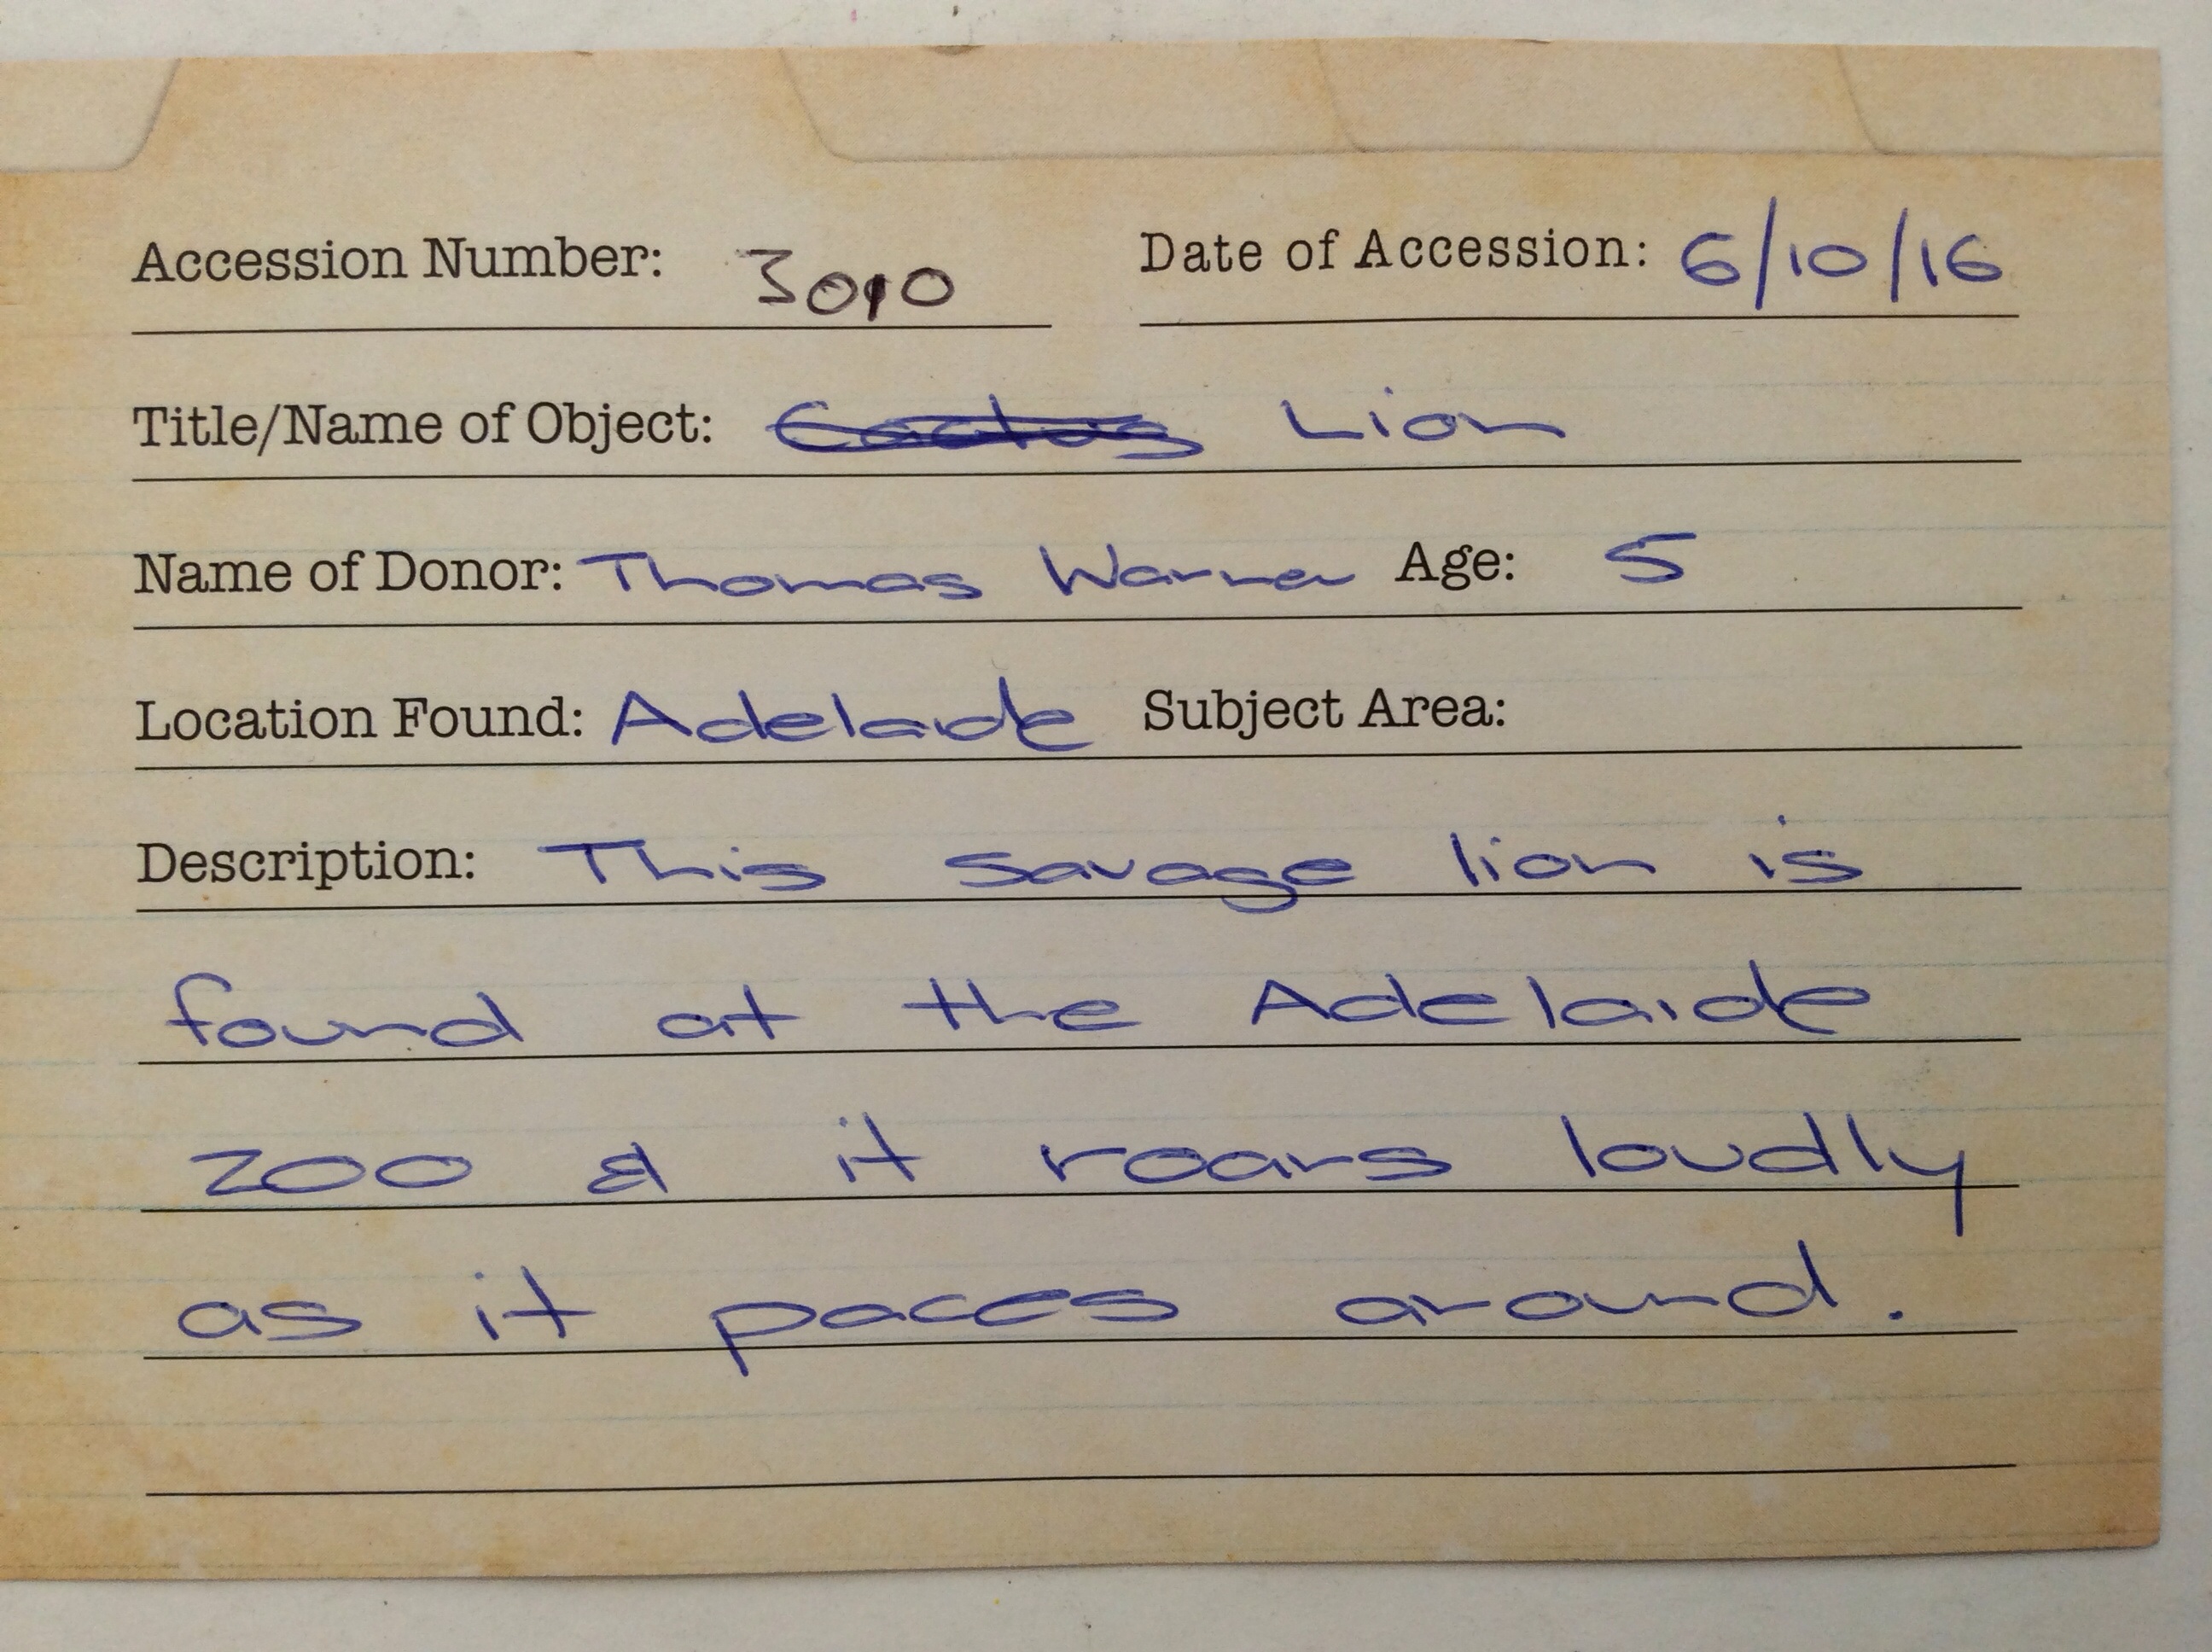 Accession Number: 3010 Date of Accession: 6/10/16
Title/Name of Object: Cactus Lion
Name of Donor: Thomas Warner Age: 5
Location Found: Adelaide Subject Area:
Description: This savage lion is
found at the Adelaide
zoo & it roars loudly
as it paces around.